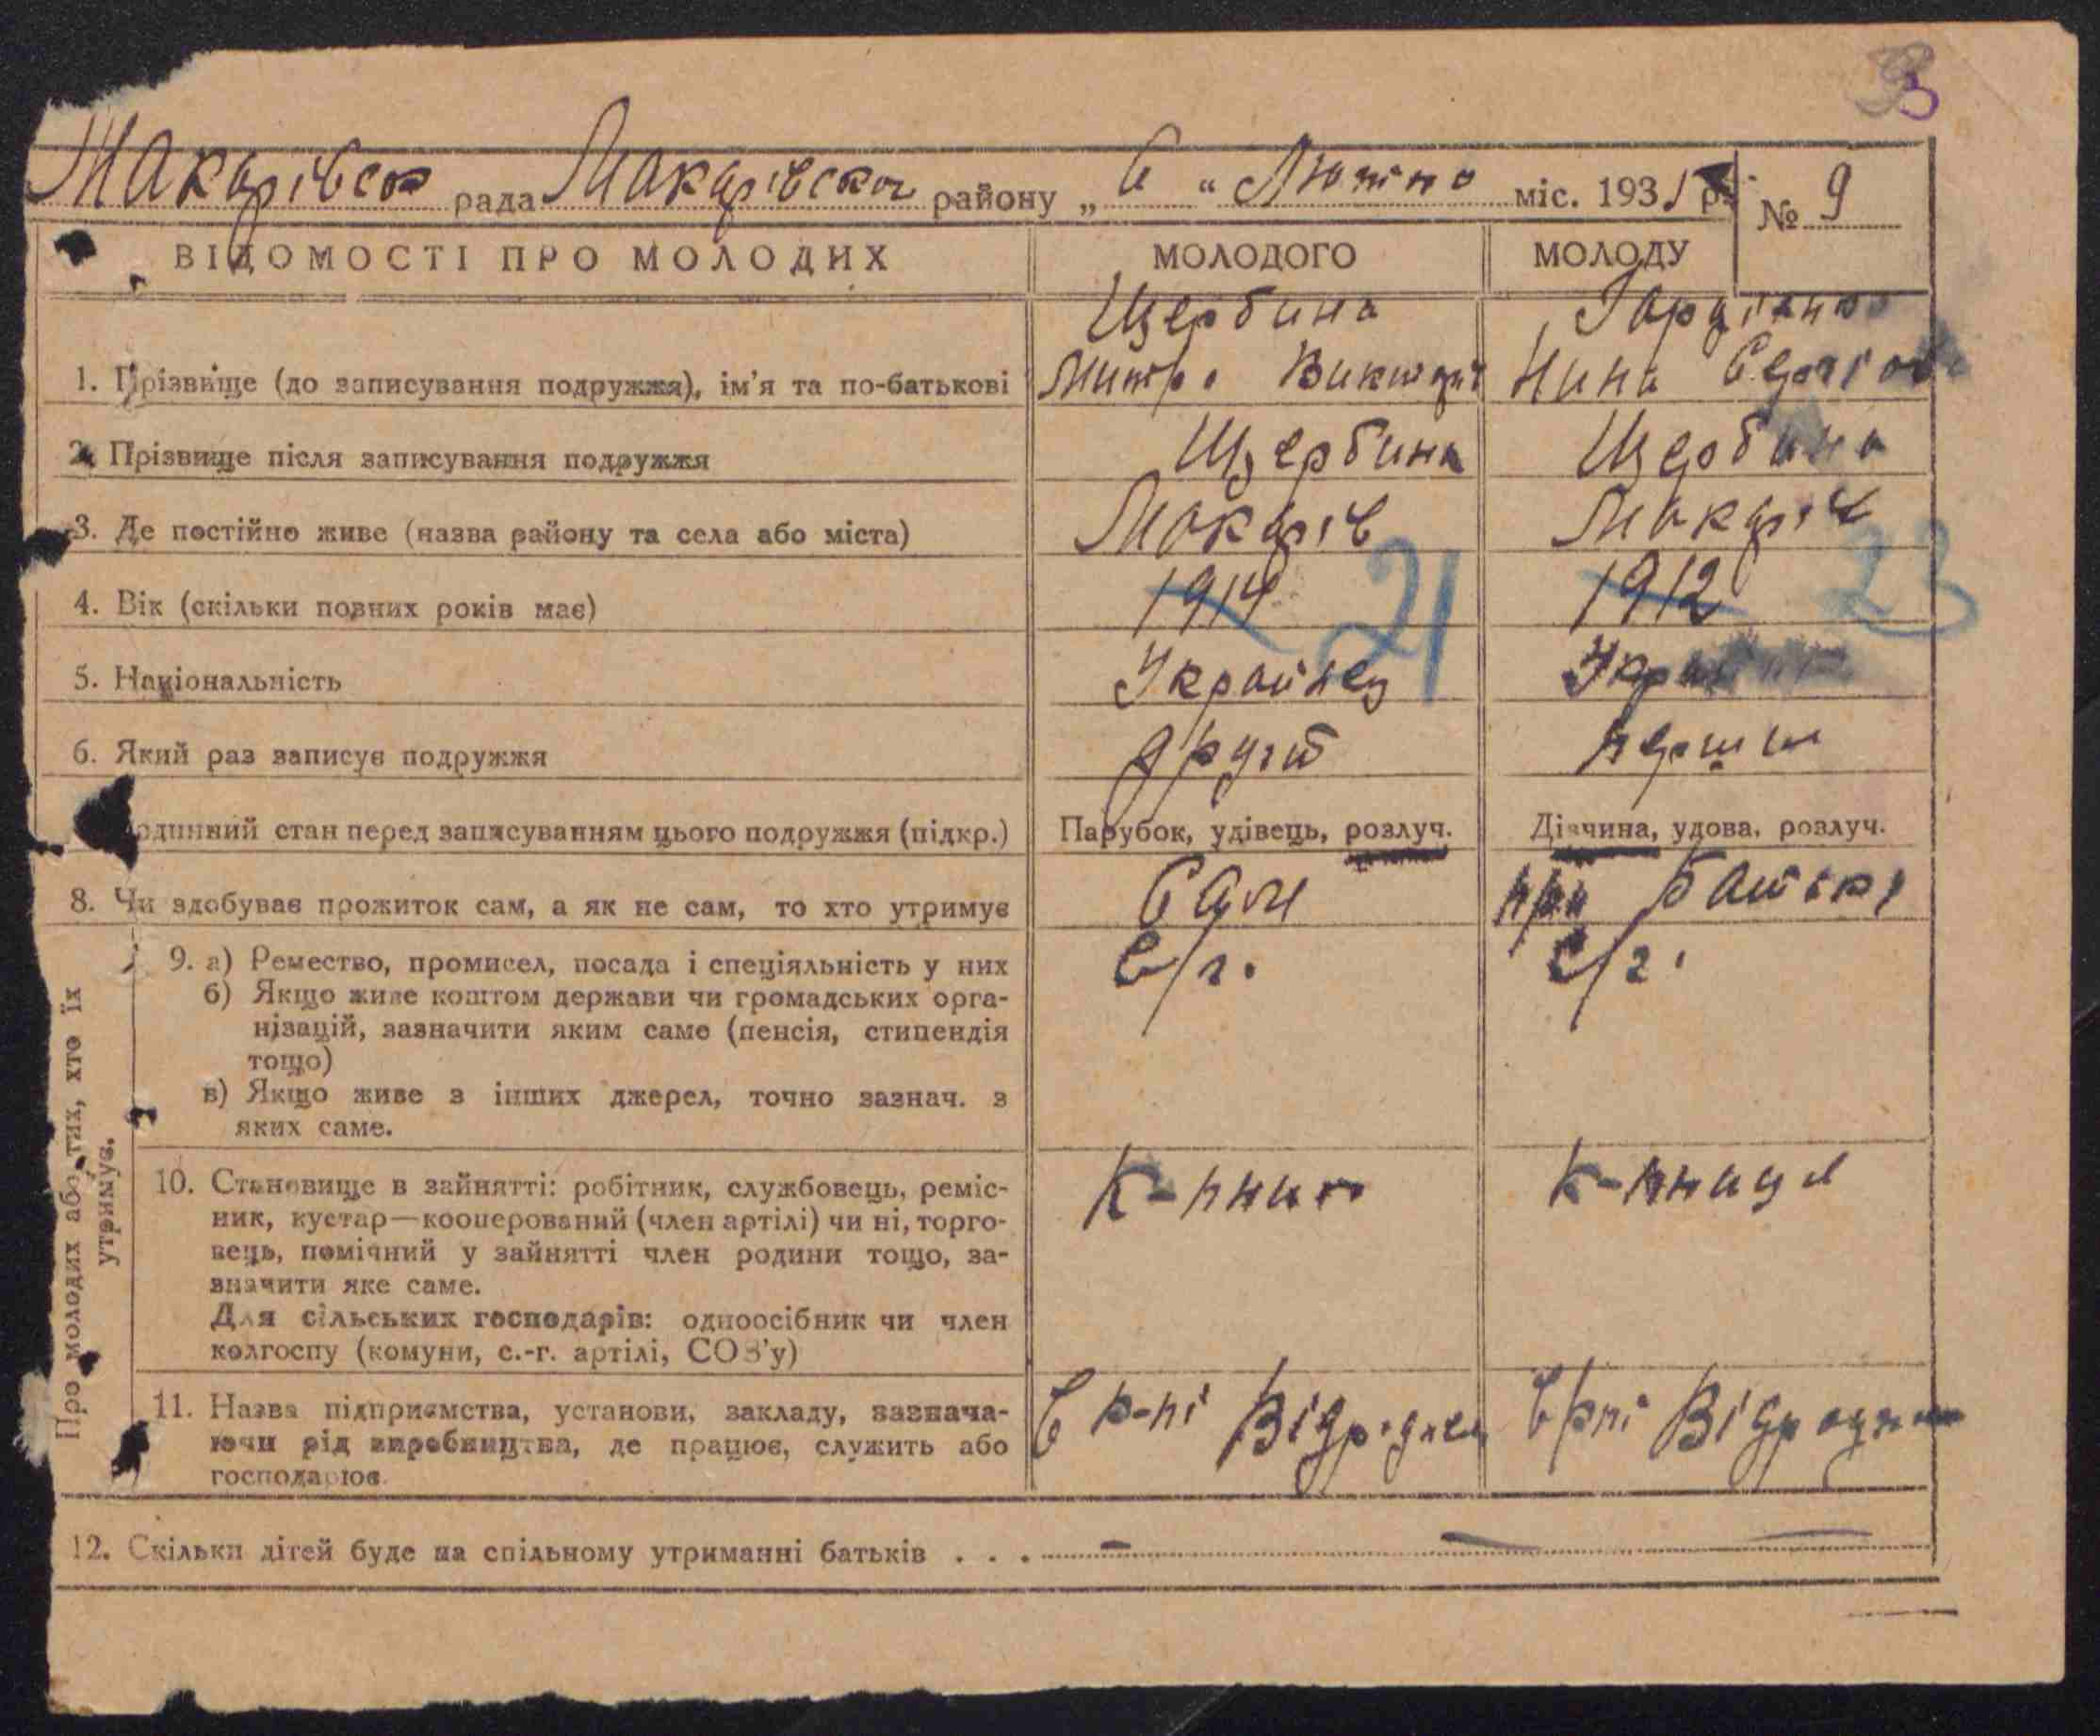 33
Макарівськ рада Макарівског району „ 6 “ Лютого міс. 1935 р. № 9
ВІДОМОСТІ ПРО МОЛОДИХ МОЛОДОГО МОЛОДУ
Щербина
1. Прізвище (до записування подружжя), ім’я та по-батькові Митро Нина
2. Прізвище після записування подружжя Щербина Щербина
3. Де постійно живе (назва району та села або міста) Макарів Макарів
4. Вік (скільки повних років має) 1914 21 1912 23
5. Національність Українец
6. Який раз записує подружжя другий перший
одинний стан перед записуванням цього подружжя (підкр.) Парубок, удівець, розлуч. Дівчина, удова, розлуч.
8. Чи здобуває прожиток сам, а як не сам, то хто утримує Сам при батькі
Про молодих або тих, хто їх
утримує.
9. а) Ремество, промисел, посада і спеціяльність у них С/г. С/г.
б) Якщо живе коштом держави чи громадських орга-
нізацій, зазначити яким саме (пенсія, стипендія
тощо)
в) Якщо живе з інших джерел, точно зазнач. з
яких саме.
10. Становище в зайнятті: робітник, службовець, реміс- К-пник К-пниця
ник, кустар—кооперований (член артілі) чи ні, торго-
вець, помічний у зайнятті член родини тощо, за-
значити яке саме.
Для сільських господарів: одноосібник чи член
колгоспу (комуни, с.-г. артілі, СОЗ’у)
11. Назва підприємства, установи, закладу, зазнача-
ючи рід виробництва, де працює, служить або
господарює.
12. Скільки дітей буде на спільному утриманні батьків . . . — — —